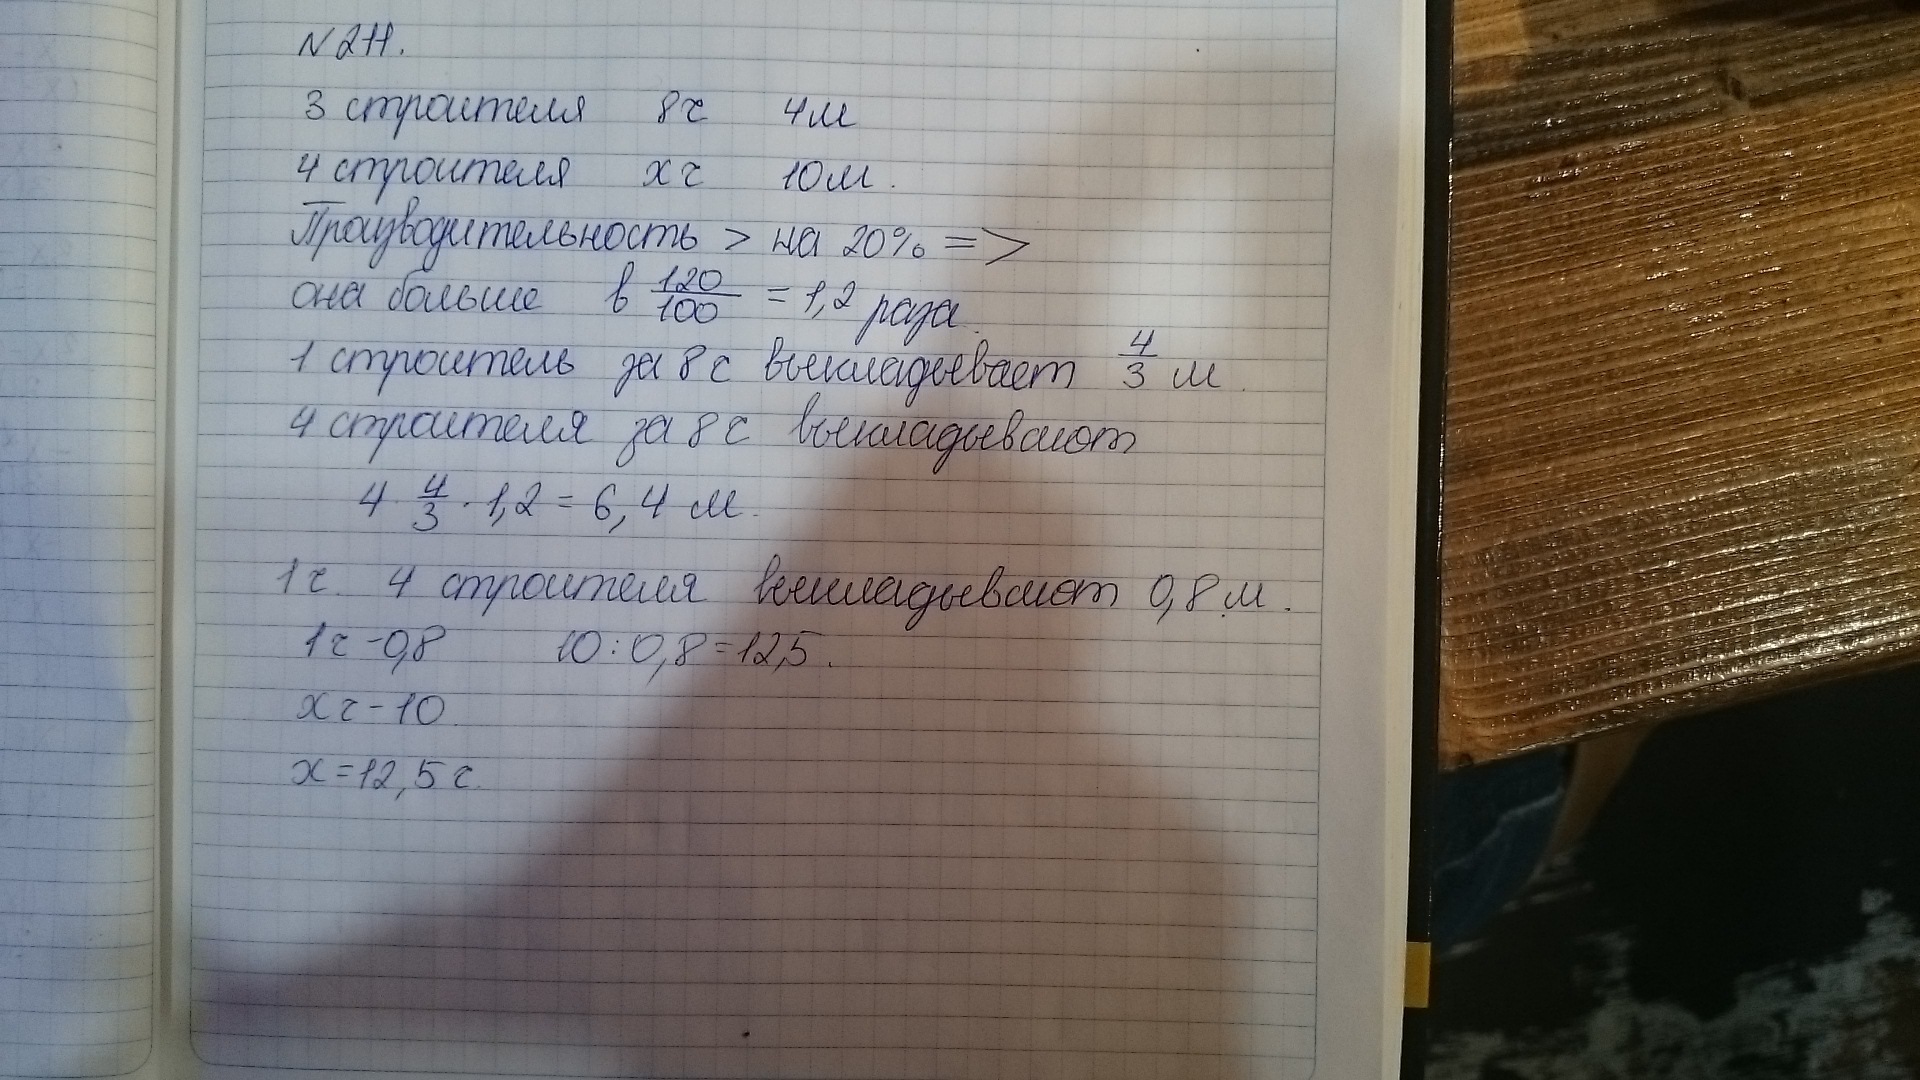 N 211.
3 строителя 8ч 4м
4 строителя xч 10м.
Производительность > на 20% =>
она больше в 120/100 = 1,2 раза.
1 строитель за 8ч выкладывает 4/3 м.
4 строителя за 8ч выкладывают
4 · 4/3 · 1,2 = 6,4 м.
1ч. 4 строителя выкладывают 0,8 м.
1ч - 0,8 10 : 0,8 = 12,5.
xч - 10.
x = 12,5 ч.